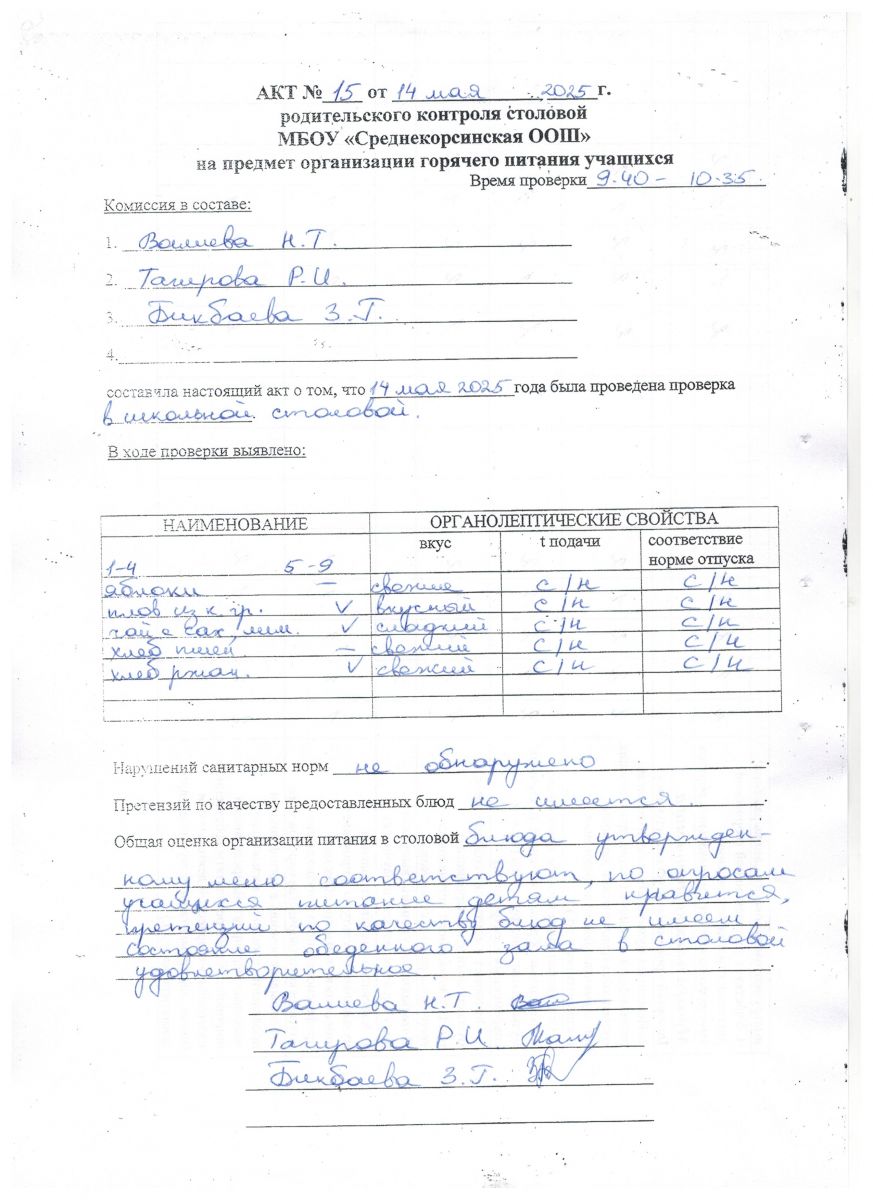 АКТ № 15 от 14 мая 2025 г.
родительского контроля столовой
МБОУ «Среднекорсинская ООШ»
на предмет организации горячего питания учащихся
Время проверки 9.40 - 10.35.
Комиссия в составе:
1. Валиева Н.Т.
2. Тагирова Р.И.
3. Бикбаева З.Г.
4.
составила настоящий акт о том, что 14 мая 2025 года была проведена проверка
в школьной столовой.
В ходе проверки выявлено:
НАИМЕНОВАНИЕ ОРГАНОЛЕПТИЧЕСКИЕ СВОЙСТВА
1-4 5-9 вкус t подачи соответствие норме отпуска
яблоки — свежие с/н с/н
плов из к гр. v вкусный с/н с/н
чай с сах, лим. v сладкий с/н с/н
хлеб пшен — свежий с/н с/н
хлеб ржан. v свежий с/н с/н
Нарушений санитарных норм не обнаружено.
Претензий по качеству предоставленных блюд не имеется.
Общая оценка организации питания в столовой блюда утвержден-
ному меню соответствуют, по опросам
учащихся питание детям нравится,
претензий по качеству блюд не имеем,
состояние обеденного зала в столовой
удовлетворительное.
Валиева Н.Т.
Тагирова Р.И.
Бикбаева З.Г.